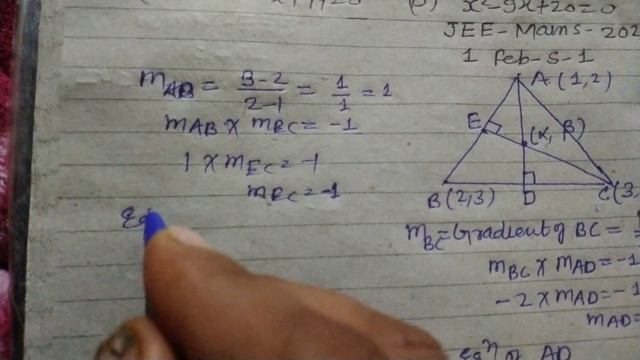 (b) x²-9x+20=0
JEE-Mains-202
1 Feb-S-1
mAB = 3-2/2-1 = 1/1 = 1
mAB × mEC = -1
1 × mEC = -1
mEC = -1
A (1,2)
E
(α, β)
B(2,3)
D
C(3,
mBC = Gradient of BC =
mBC × mAD = -1
-2 × mAD = -1
mAD =
eqn of AD